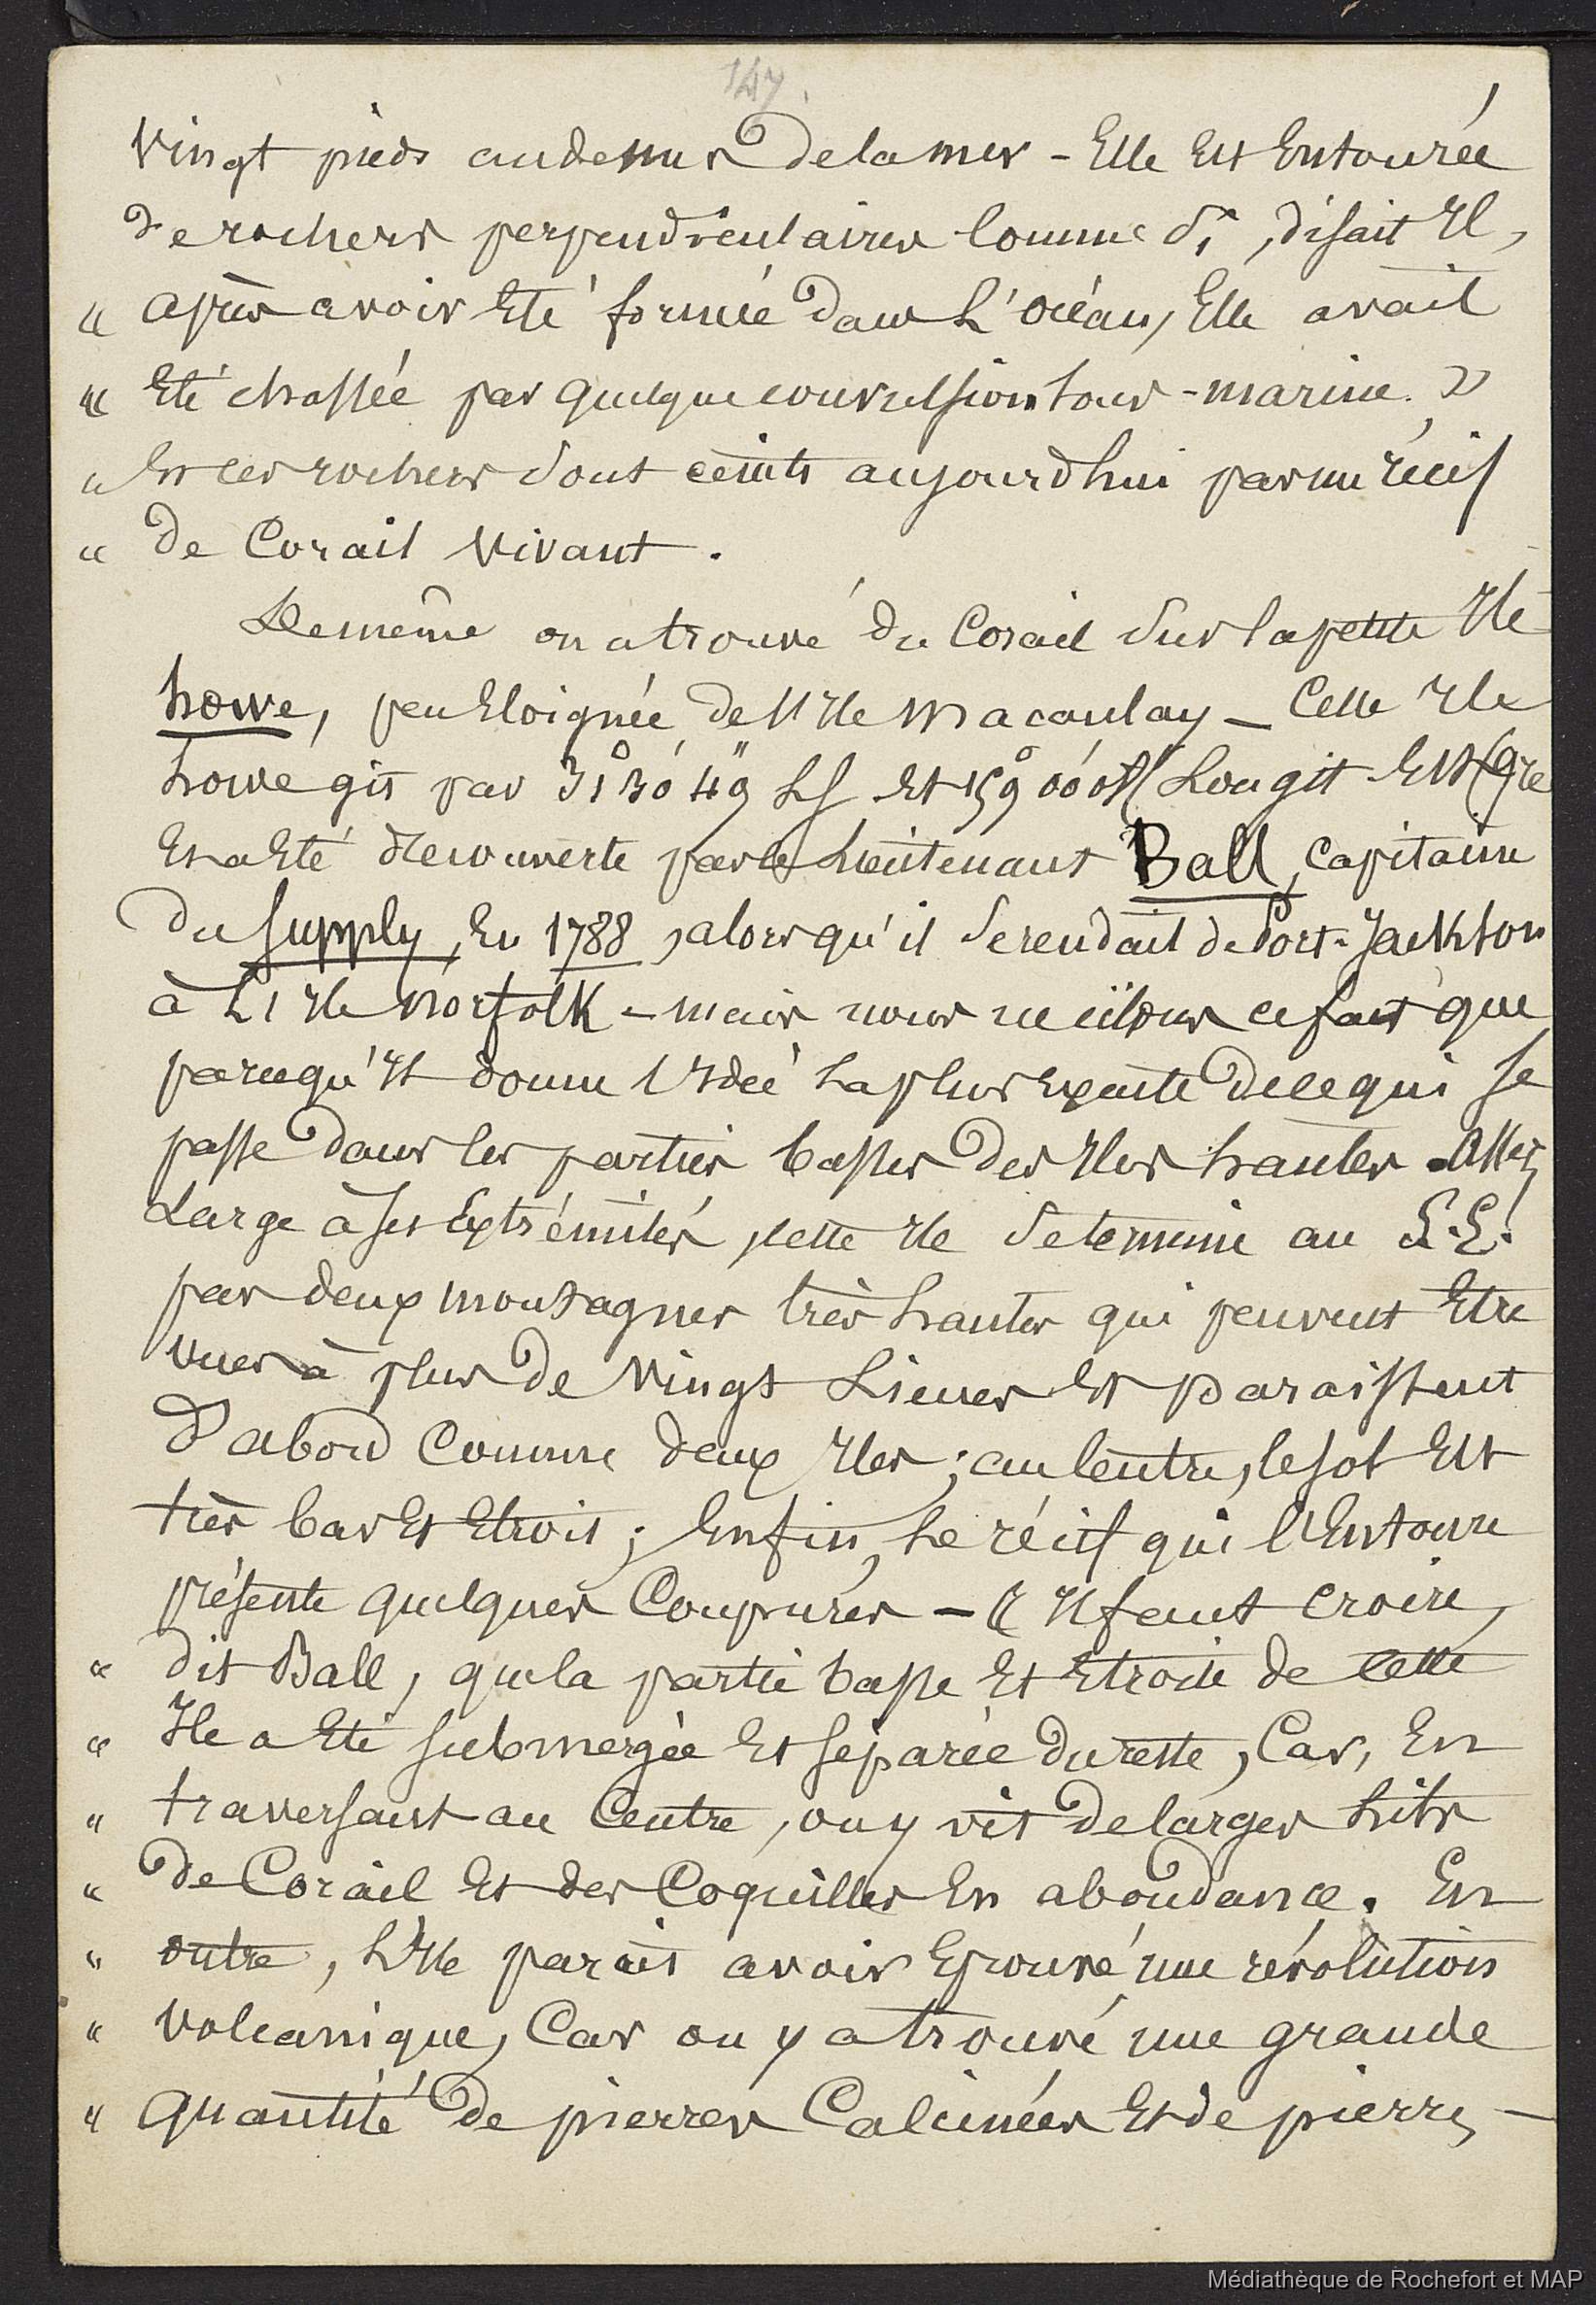 147
vingt pieds au dessus de la mer - Elle Est Entourée
de rochers perpendiculaires Comme si, disait Il,
" après avoir Eté formée dans L'Océan, Elle avait
" Eté chassée par quelque convulsion sous-marine. »
" Et ces rochers sont ceints aujourd'hui par un récif
" de Corail vivant.
De même on a trouvé du Corail sur la petite Ile
howe, peu Eloignée de l'Ile Macaulay - Cette Ile
howe gît par 31°30'49" LS Et 159°00'00" Longit Est Gre
Et a Eté découverte par le Lieutenant Ball, Capitaine
du Supply, En 1788, alors qu'il se rendait de Port-Jackson
à L'Ile Norfolk - mais nous ne citons ce fait que
parcequ'Il donne l'Idée La plus Exacte de ce qui se
passe dans les parties basses des Iles hautes. Assez
Large à ses Extrémités, cette Ile se termine au S.E.
par deux montagnes très hautes qui peuvent Etre
vues à plus de vingt Lieues Et paraissent
d'abord Comme deux Iles ; au Centre, le sol Est
très bas Et Etroit ; Enfin, Le récif qui l'Entoure
présente quelques Coupures - « Il faut croire,
" dit Ball, que la partie basse Et Etroite de cette
" Ile a Eté submergée Et séparée du reste, Car, En
" traversant au Centre, on y vit de larges Lits
" de Corail Et des Coquilles En abondance. En
" outre, L'Ile parait avoir Eprouvé une révolution
" volcanique, Car on y a trouvé une grande
" quantité de pierres Calcinées Et de pierres -
Médiathèque de Rochefort et MAP